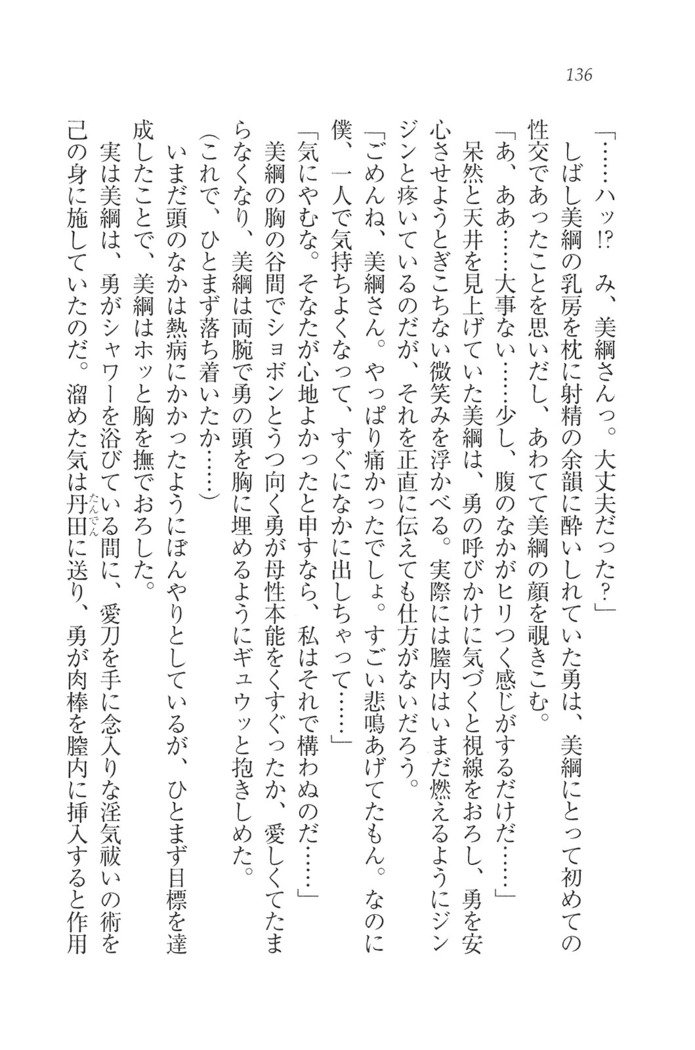 136
「……ハッ!?　み、美綱さんっ。大丈夫だった？」
　しばし美綱の乳房を枕に射精の余韻に酔いしれていた勇は、美綱にとって初めての
性交であったことを思いだし、あわてて美綱の顔を覗きこむ。
「あ、ああ……大事ない……少し、腹のなかがヒリつく感じがするだけだ……」
　呆然と天井を見上げていた美綱は、勇の呼びかけに気づくと視線をおろし、勇を安
心させようとぎこちない微笑みを浮かべる。実際には膣内はいまだ燃えるようにジン
ジンと疼いているのだが、それを正直に伝えても仕方がないだろう。
「ごめんね、美綱さん。やっぱり痛かったでしょ。すごい悲鳴あげてたもん。なのに
僕、一人で気持ちよくなって、すぐになかに出しちゃって……」
「気にやむな。そなたが心地よかったと申すなら、私はそれで構わぬのだ……」
　美綱の胸の谷間でションボンとうつ向く勇が母性本能をくすぐったか、愛しくてたま
らなくなり、美綱は両腕で勇の頭を胸に埋めるようにギュウッと抱きしめた。
（これで、ひとまず落ち着いたか……）
　いまだ頭のなかは熱病にかかったようにぼんやりとしているが、ひとまず目標を達
成したことで、美綱はホッと胸を撫でおろした。
　実は美綱は、勇がシャワーを浴びている間に、愛刀を手に念入りな淫気祓いの術を
己の身に施していたのだ。溜めた気は丹田たんでんに送り、勇が肉棒を膣内に挿入すると作用